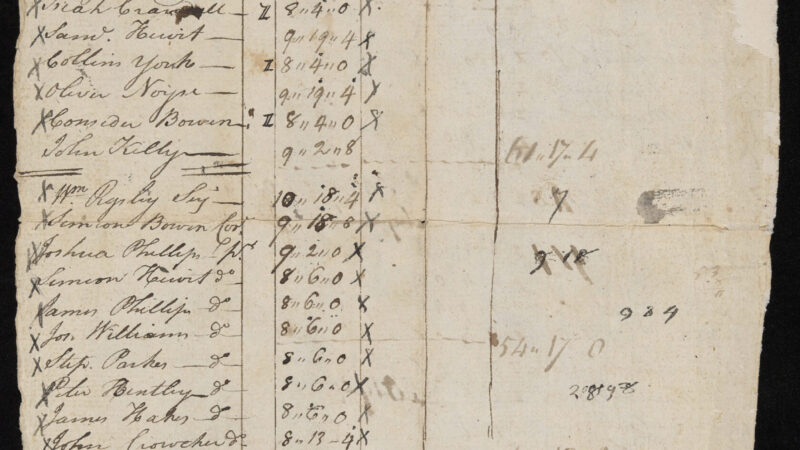 X Crandall — II 8 „ 4 „ 0 X
X Sam.l Hewit — 9 „ 19 „ 4 X
X Collins York — II 8 „ 4 „ 0 X
X Oliver Noyse — 9 „ 19 „ 4 X
X Consider Bowen II 8 „ 4 „ 0 X
John Kelly — 9 „ 2 „ 8 61 „ 17 „ 4
X Wm Rigsby Serj 10 „ 18 „ 4 X 7
X Simeon Bowen Cor 9 „ 18 „ 8 X
X Joshua Phillips 9 „ 2 „ 0 X 9 18
X Simeon Hewit do 8 „ 6 „ 0 X
X James Phillips do 8 „ 6 „ 0 X 9 8 9
X Jos. Williams do 8 „ 6 „ 0 X 54 „ 17 0
X Step. Parkes do 8 „ 6 „ 0 X
X Peter Hentley do 8 „ 6 „ 0 X
X James Hakes do 8 „ 6 „ 0 X
X John Crowcher do 8 „ 13 – 4 X